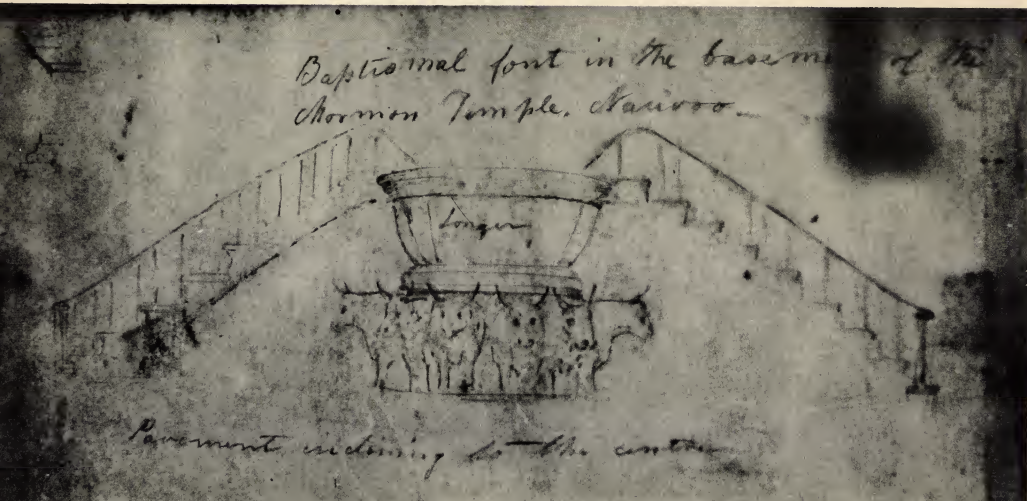 Baptismal font in the baseme of the
Mormon Temple. Nauvoo
Longer
Pavement inclining to the centre